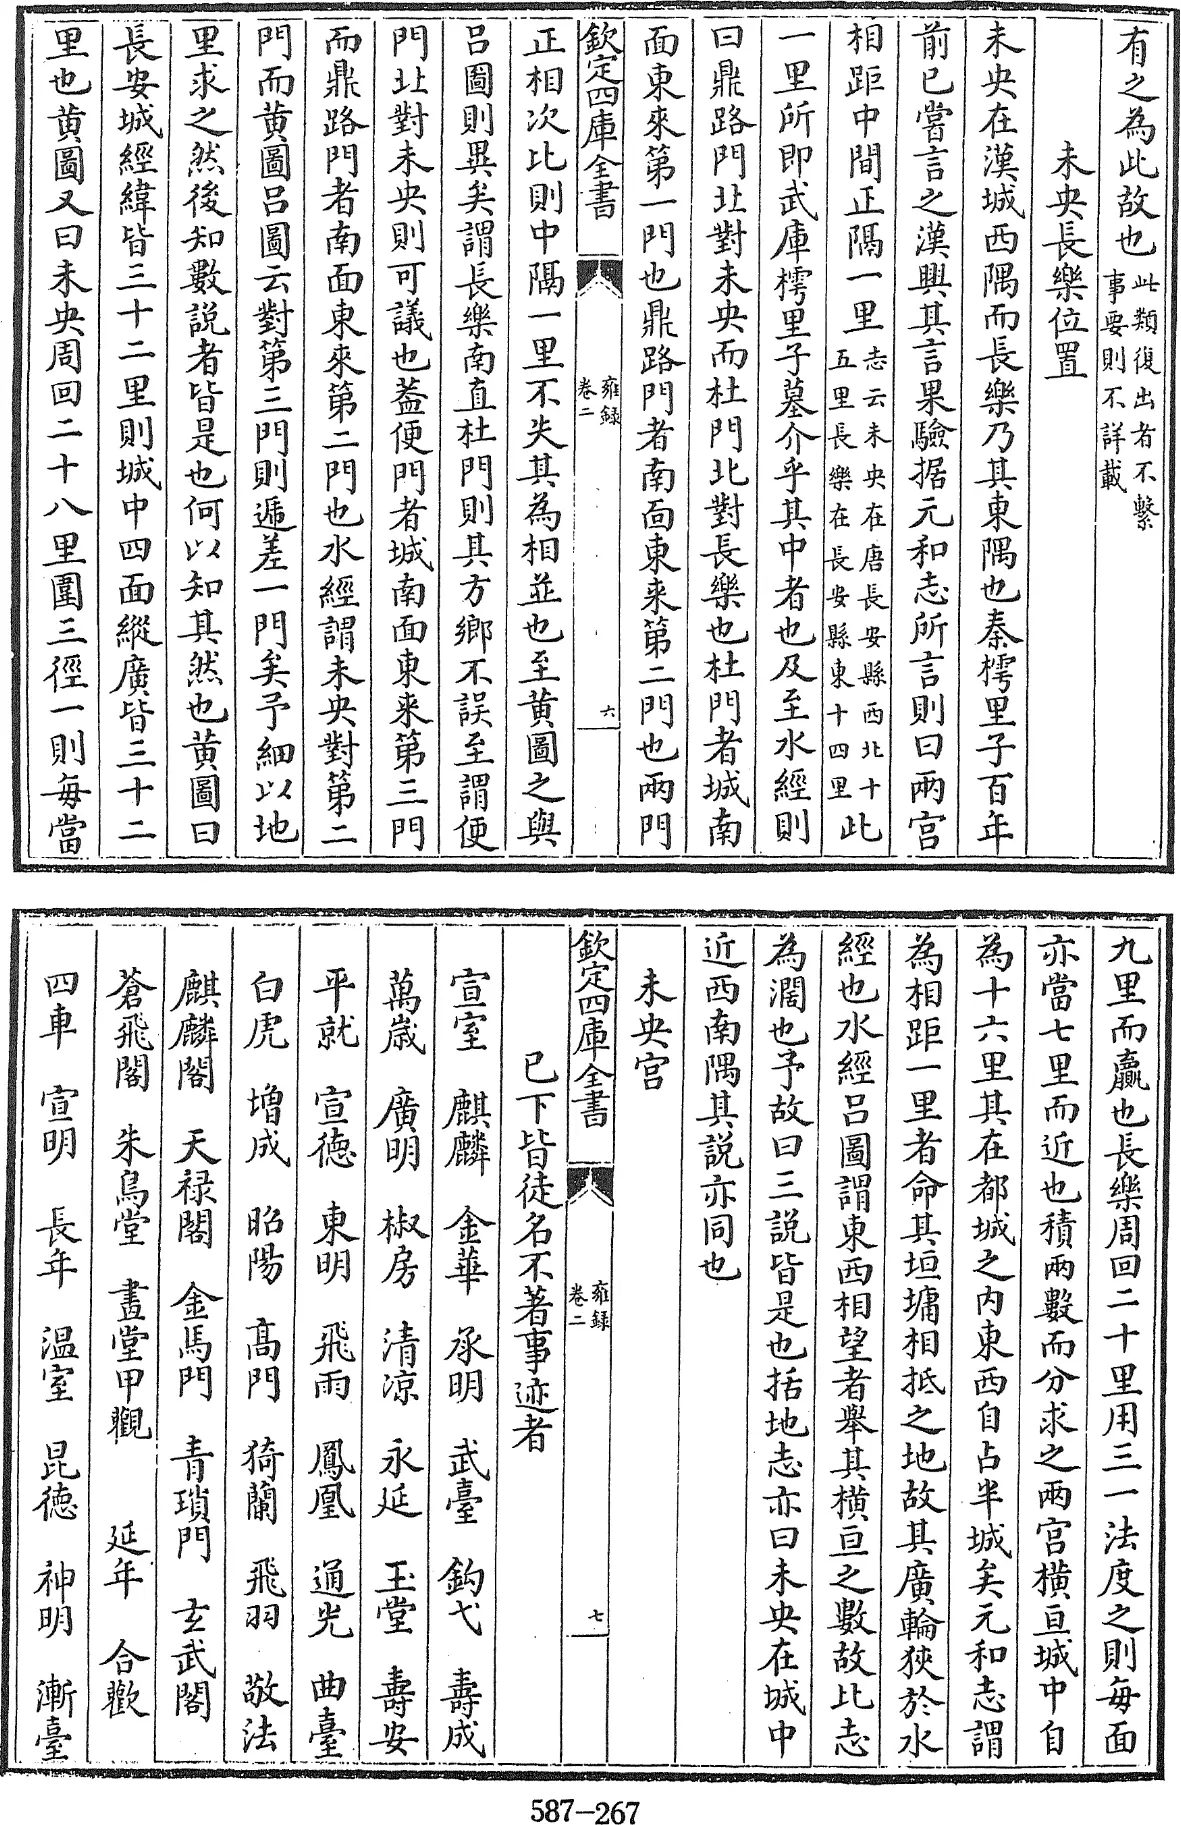 有之為此故也此類復出者不繫事要則不詳載
未央長樂位置
未央在漢城西隅而長樂乃其東隅也秦樗里子百年
前已嘗言之漢興其言果驗据元和志所言則曰兩宮
相距中間正隔一里志云未央在唐長安縣西北十五里長樂在長安縣東十四里此
一里所即武庫樗里子墓介乎其中者也及至水經則
曰鼎路門北對未央而杜門北對長樂也杜門者城南
面東來第一門也鼎路門者南面東来第二門也兩門
欽定四庫全書
雍録
卷二
六
正相次比則中隔一里不失其為相並也至黄圖之與
吕圖則異矣謂長樂南直杜門則其方鄉不誤至謂便
門北對未央則可議也葢便門者城南面東来第三門
而鼎路門者南面東來第二門也水經謂未央對第二
門而黄圖吕圖云對第三門則遞差一門矣予細以地
里求之然後知數説者皆是也何以知其然也黄圖曰
長安城經緯皆三十二里則城中四面縱廣皆三十二
里也黄圖又曰未央周回二十八里圍三徑一則每當
九里而贏也長樂周回二十里用三一法度之則每面
亦當七里而近也積兩數而分求之兩宮橫亘城中自
為十六里其在都城之内東西自占半城矣元和志謂
為相距一里者命其垣墉相抵之地故其廣輪狹於水
經也水經吕圖謂東西相望者舉其橫亘之數故比志
為濶也予故曰三説皆是也括地志亦曰未央在城中
近西南隅其説亦同也
未央宮
欽定四庫全書
雍録
卷二
七
已下皆徒名不著事迹者
宣室 麒麟 金華 承明 武臺 鈎弋 壽成
萬歲 廣明 椒房 清凉 永延 玉堂 壽安
平就 宣德 東明 飛雨 鳳凰 通光 曲臺
白虎 增成 昭陽 髙門 猗蘭 飛羽 敬法
麒麟閣 天禄閣 金馬門 青瑣門 玄武閣
蒼飛閣 朱鳥堂 畫堂甲觀 延年 合歡
四車 宣明 長年 温室 昆德 神明 漸臺
587-267